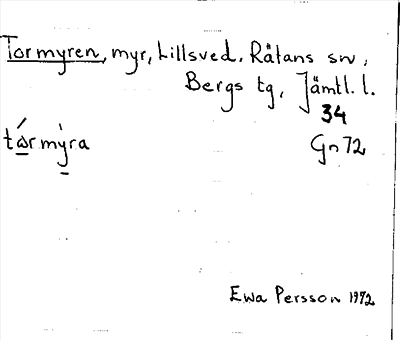 Tormyren, myr, Lillsved, Råtans sn,
Bergs tg, Jämtl. l.
34
tórmỳra Gn 72
Ewa Persson 1972